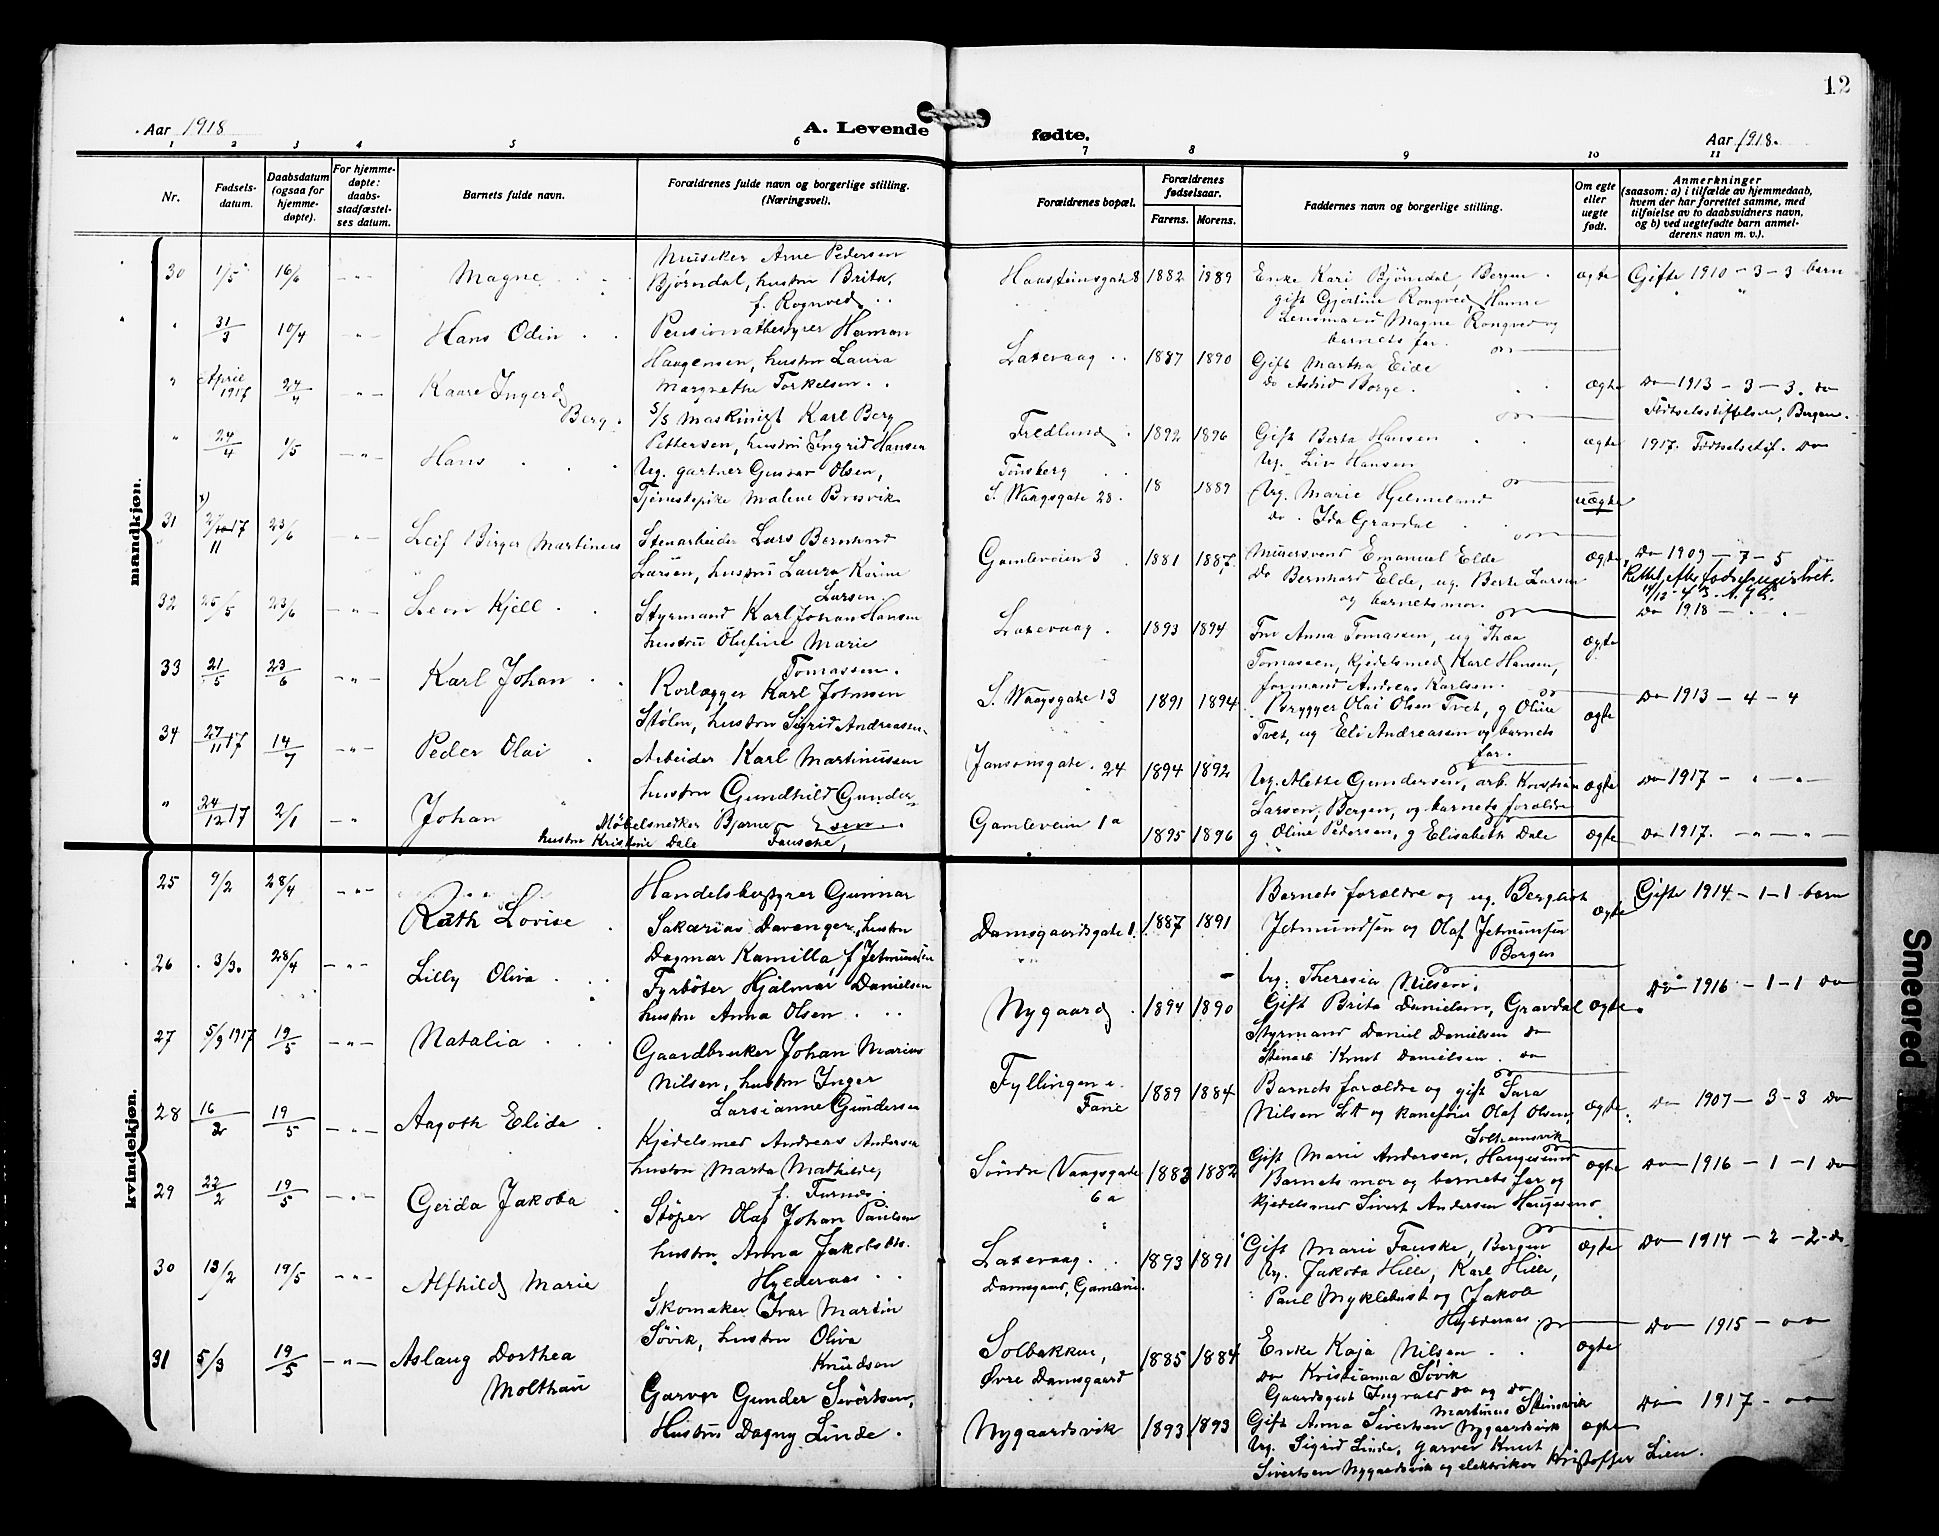 12
Aar 1918
A. Levende fødte.
Aar 1918.
1 2 3 4 5 6 7 8 9 10 11
Nr.
Fødsels-
datum.
Daabsdatum
(ogsaa for
hjemme-
døpte).
For hjemme-
døpte:
daabs-
stadfæstel-
ses datum.
Barnets fulde navn.
Forældrenes fulde navn og borgerlige stilling.
(Næringsvei).
Forældrenes bopæl.
Forældrenes
fødselsaar.
Farens. Morens.
Faddernes navn og borgerlige stilling.
Om egte
eller
uegte
født.
Anmerkninger
(saasom: a) i tilfælde av hjemmedaab,
hvem der har forrettet samme, med
tilføielse av to daabsvidners navn,
og b) ved uegtefødte barn anmel-
derens navn m. v.).
mandkjøn.
30 1/5 16/6 -"- Magne
Musiker Arne Pedersen
Bjørndal, hustru Brita,
f. Rognved
Haasteinsgate 8 1882 1889
Enke Kari Bjørndal, Bergen
gift Gjertine Rongved, Hamre
Lensmand Magne Rongved og
barnets far.
ægte Gifte 1910 - 3 - 3 barn
" 31/3 10/4 -"- Hans Odin
Pensionatbestyrer Herman
Haagensen, hustru Laura
Margrethe Torkelsen
Laxevaag 1887 1890
Gift Martha Eide
do Astrid Borge
ægte do 1913 - 3 - 3. do
Fødselsstiftelsen, Bergen.
" April 1917 24/4 -"- Kaare Ingerd
Berg
S/S Maskinigt Karl Berg
Pettersen, hustru Ingrid Hansen
Fredlund 1892 1896
Gift Berta Hansen
Ug. Liv Hansen
ægte 1917. Fødselsstif. do
" 24/4 1/5 -"- Hans
Ug. gartner Gustav Olsen,
Tjenestepike Maline Brosvik
Tønsberg
S. Waagsgate 28. 18 1889
Ug. Marie Hjelmeland
do. Ida Gravdal
uægte
31 2/11 17 23/6 -"- Leif Birger Martinius
Stenarbeider Lars Bernhard
Larsen, hustru Laura Karine
Larsen.
Gamleveien 3 1881 1887
Murersvend Emanuel Elde
do Bernhard Elde, ug. Berte Larsen
og barnets mor.
ægte do 1909 - 7 - 5 do
Rettet efter fødselsregistret.
32 25/5 23/6 -"- Leon Kjell
Styrmand Karl Johan Hansen
hustru Olufine Marie
Tomassen.
Laxevaag. 1893 1894
Fru Anna Tomassen, ug Thea
Tomassen, Kjedelsmed Karl Hansen,
formand Andreas Karlsen.
ægte do 1918 - " -
33 21/5 23/6 -"- Karl Johan
Rorlægger Karl Johnsen
Stølen, hustru Sigrid Andreassen
S. Waagsgate 13 1891 1894
Brygger Olai Olsen Tvet, g Oline
Tvet, ug Eli Andreassen og barnets
far.
ægte do 1913 - 4 - 4
34 27/11 17 14/7 -"- Peder Olai
Arbeider Karl Martinussen
hustru Gundhild Gunder-
sen.
Jansonsgate. 24 1894 1892
Ug. Alette Gundersen, arb. Kristian
Larsen, Bergen, og barnets forældre
ægte do 1917 - " - " -
" 24/12 17 2/1 -" Johan
Møbelsnedker Bjarne
Fauske,
hustru Kristine Dale
Gamleveien 1a 1895 1896
g Oline Pedersen, g Elisabeth Dale
ægte do 1917. - " - " -
kvindekjøn.
25 9/2 28/4 -"- Ruth Lovise
Handelsbestyrer Gunnar
Sakarias Davanger, hustru
Dagmar Kamilla, f Jetmundsen
Damsgaardsgate 1. 1887 1891
Barnets forældre og ug. Bergliot
Jetmundsen og Olaf Jetmundsen
Bergen
ægte Gifte 1914 - 1 - 1 barn
26 3/3. 28/4 -"- Lilly Oliva
Fyrbøter Hjalmar Danielsen
hustru Anna Olsen
Nygaard 1894 1890
Ug. Theresia Nilsen,
Gift Brita Danielsen, Gravdal
Styrmand Daniel Danielsen do
Stenarb Knut Danielsen do
ægte do 1916 - 1 - 1 do
27 5/9 1917 19/5 -"- Natalia
Gaardbruker Johan Marius
Nilsen, hustru Inger
Larsianne Gundersen
Fyllingen i
Fane 1889 1884
Barnets forældre og gift Sara
Nilsen Litt og kanefører Olaf Olsen,
Solheimsvik
ægte do 1907 - 3 - 3 do
28 16/2 19/5 -"- Aagoth Elida
Kjedelsmed Andreas Andersen
hustru Marta Mathilde,
f. Furnes.
Søndre Vaagsgate
6a 1883 1882
Gift Marie Andersen, Haugesund
Barnets mor og barnets far og
Kjedelsmed Sivert Andersen Haugesund
ægte do 1916 - 1 - 1 do
29 22/2 19/5 -"- Gerda Jakoba
Støper Olaf Johan Paulsen
hustru Anna Jakobsdtr.
Hylderaas
Laxevaag.
Damsgaard, Gamlevei. 1893 1891
Gift Marie Fauske, Bergen
Ug. Jakoba Hille, Karl Hille,
Paul Myklebust og Jakob
Hylderaas
ægte do 1914 - 2 - 2 - do
30 13/2 19/5 -"- Alfhild Marie
Skomaker Ivar Martin
Søvik, hustru Oliva
Knudsen
Solbakken,
Øvre Damsgaard 1885 1884
Enke Kaja Nilsen
do Kristianna Søvik
Gaardsgut Ingvald do og do
Martinus Steinsvik
ægte do 1915 - "
31 5/3 19/5 -"- Aslaug Dorthea
Molthau
Garver Gunder Sivertsen,
Hustru Dagny Linde.
Nygaardsvik 1893 1893
Gift Anna Sivertsen Nygaardsvik
Ug. Sigrid Linde, garver Knut
Sivertsen Nygaardsvik og elektriker Kristoffer Lien.
ægte do 1917 - "
Smeared